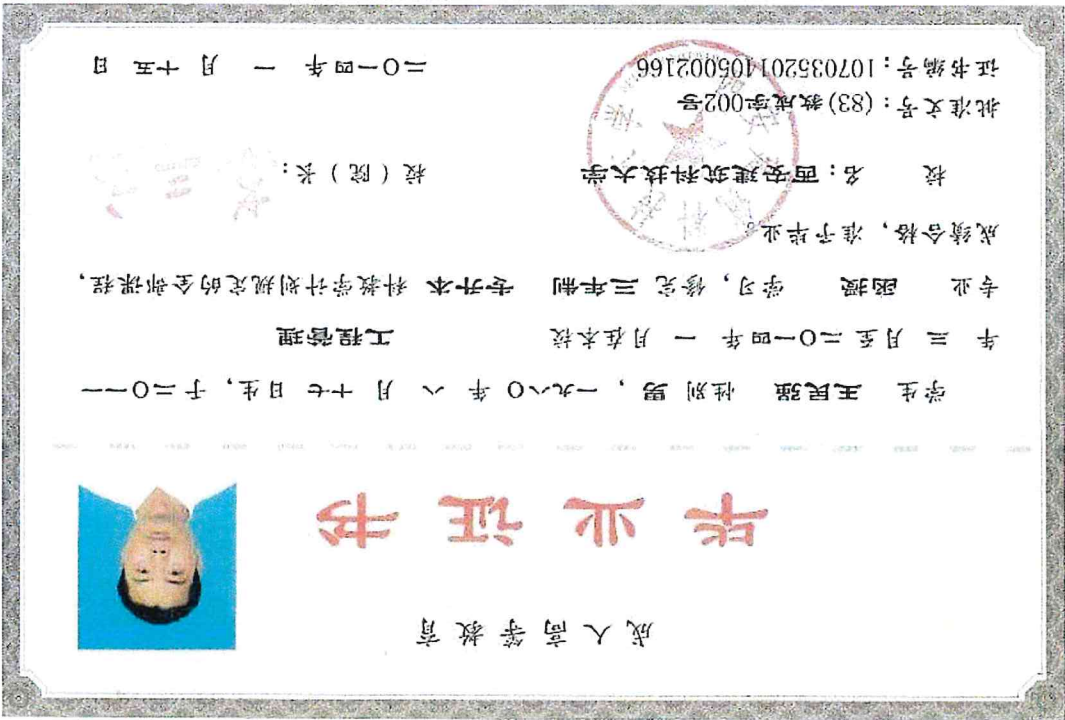 成人高等教育
毕业证书
学生 王民强 性别 男，一九八〇年 八 月 十七 日生，于二〇一一
年 三 月至二〇一四年 一 月在本校 工程管理
专业 函授 学习，修完 三年制 专升本 科教学计划规定的全部课程，
成绩合格，准予毕业。
校 名：西安建筑科技大学 校（院）长：
批准文号：(83)教成字002号
证书编号：107035201405002166 二〇一四年 一 月 十五 日